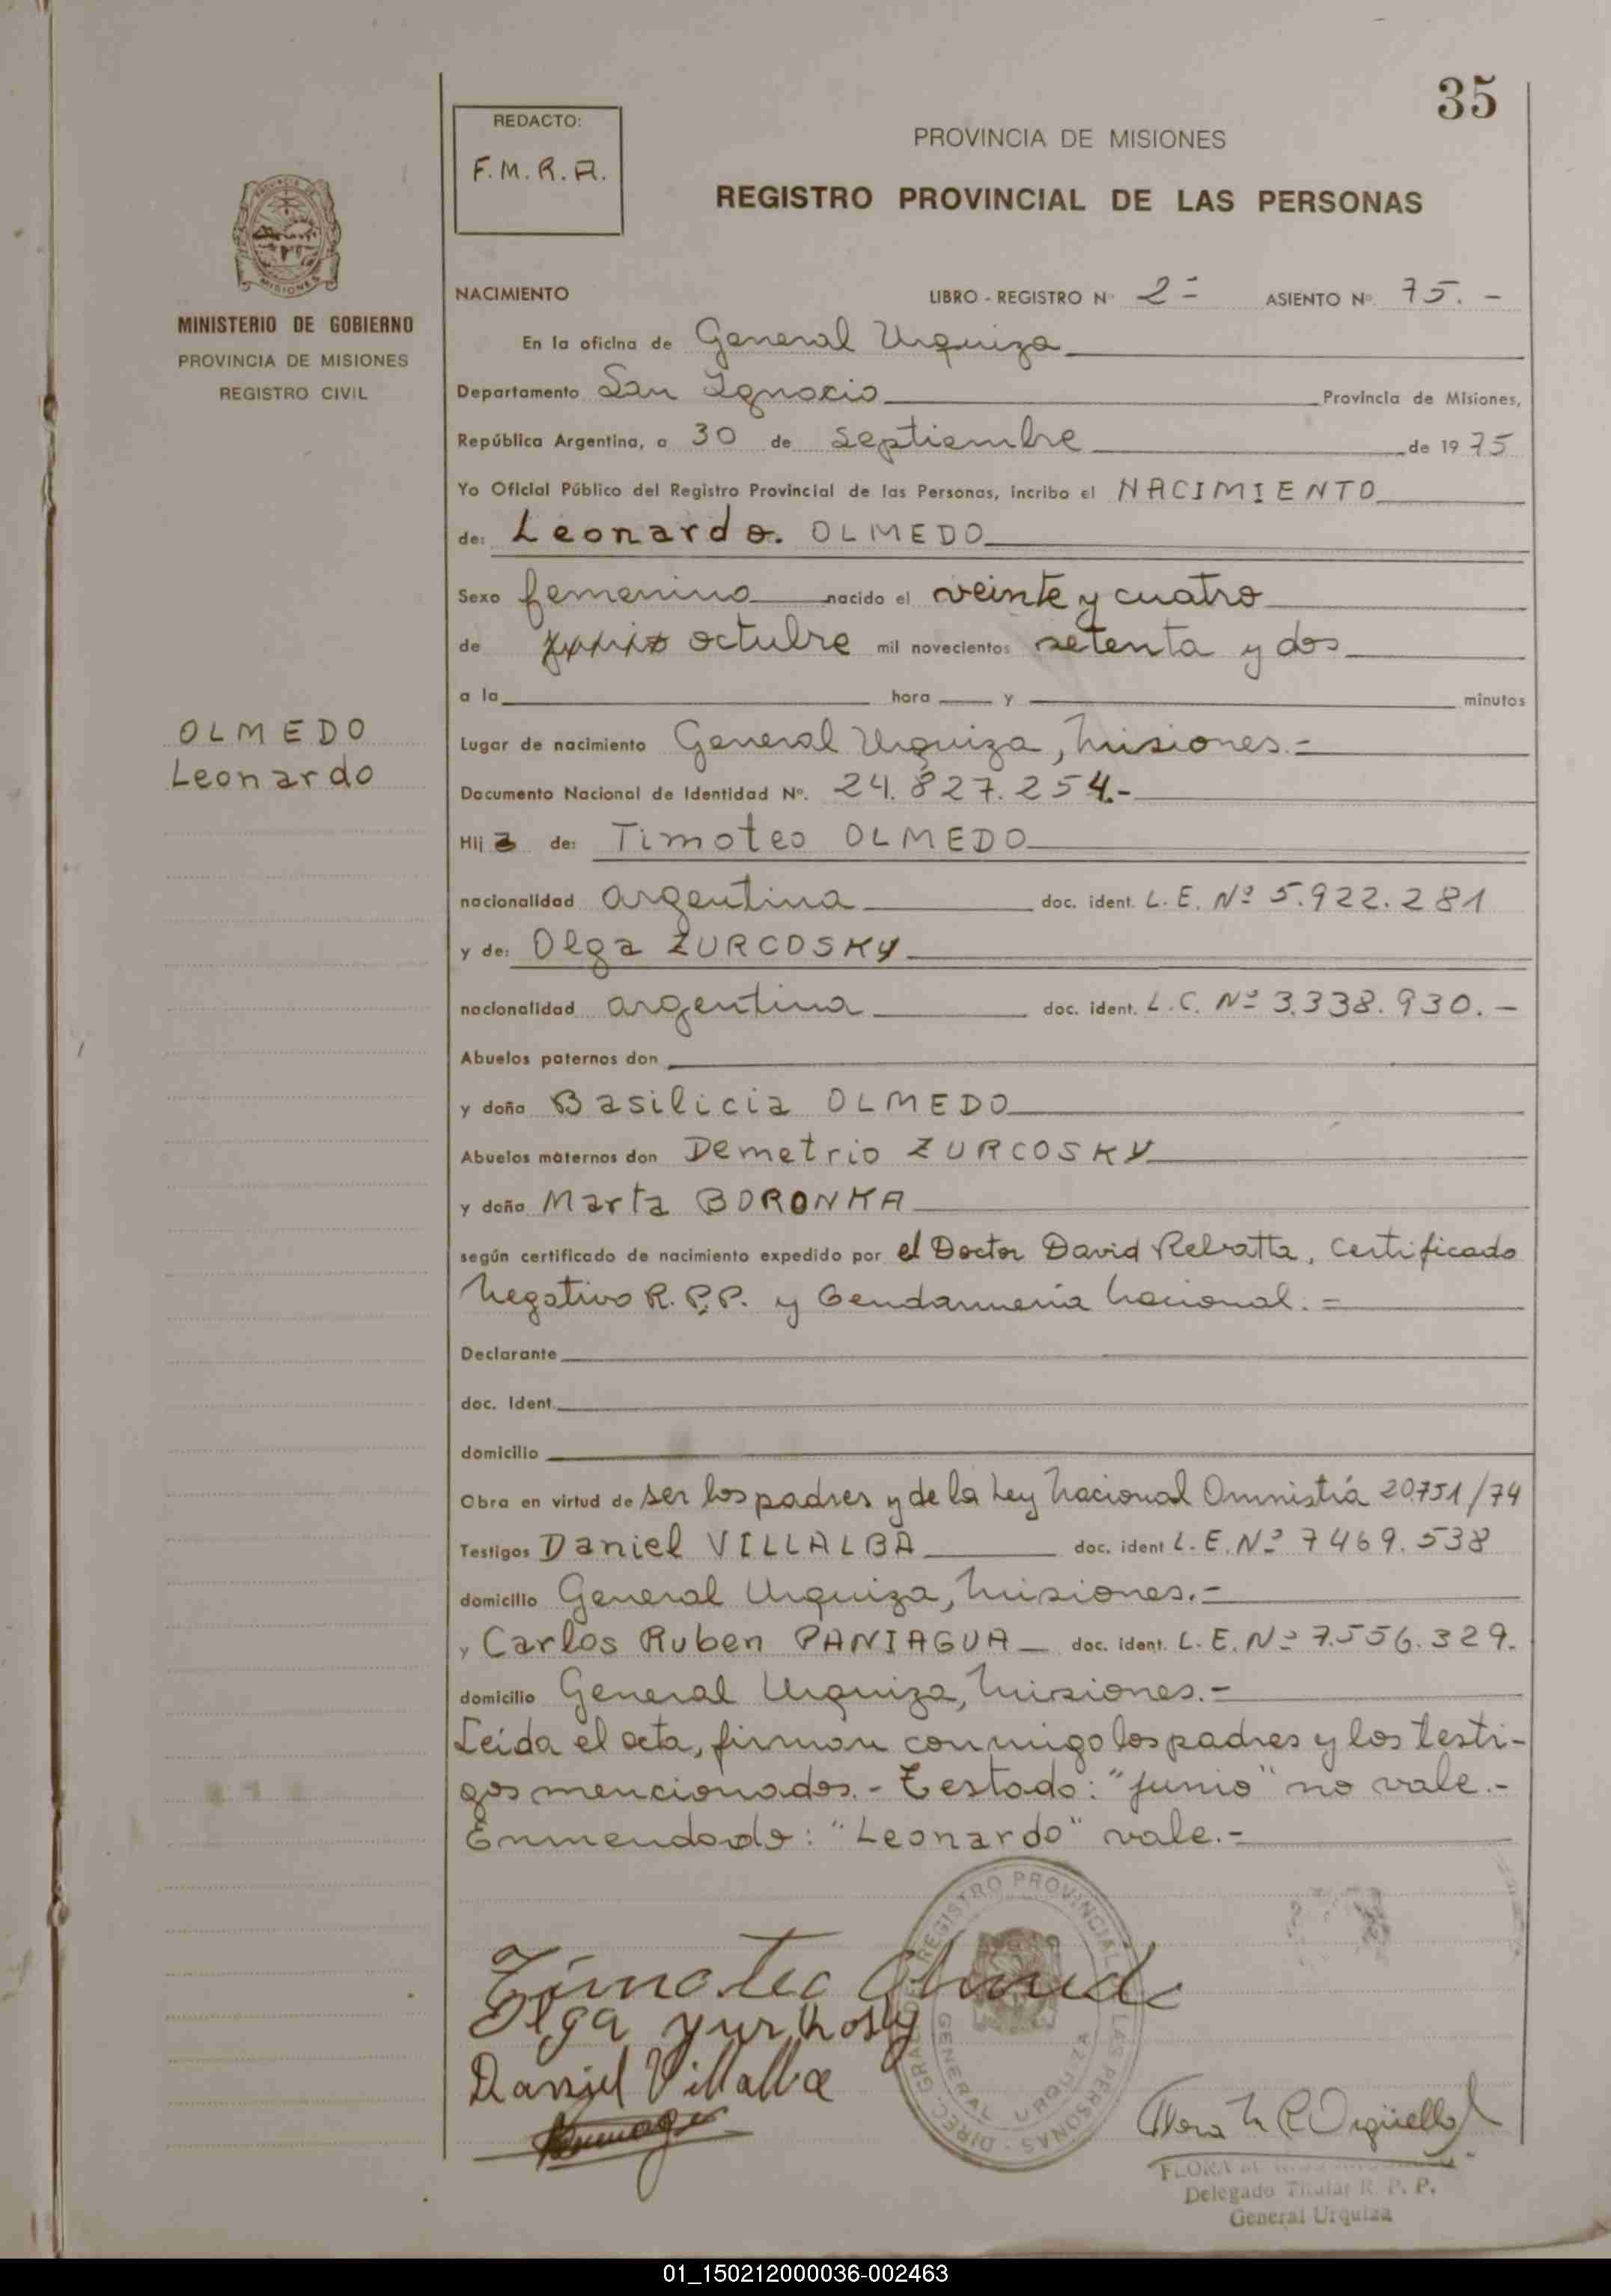 35
REDACTO:
F.M.R.A.
PROVINCIA DE MISIONES
REGISTRO PROVINCIAL DE LAS PERSONAS
MISIONES
MINISTERIO DE GOBIERNO
PROVINCIA DE MISIONES
REGISTRO CIVIL
OLMEDO
Leonardo
NACIMIENTO LIBRO - REGISTRO Nº 2- ASIENTO Nº 75. -
En la oficina de General Urquiza
Departamento San Ignacio Provincia de Misiones,
República Argentina, a 30 de septiembre de 1975
Yo Oficial Público del Registro Provincial de las Personas, incribo el NACIMIENTO
de: Leonardo. OLMEDO
Sexo femenino nacido el veinte y cuatro
de junio octubre mil novecientos setenta y dos
a la hora y minutos
Lugar de nacimiento General Urquiza, Misiones.=
Documento Nacional de Identidad Nº. 24.827.254.-
Hij a de: Timoteo OLMEDO
nacionalidad argentina doc. ident. L.E. Nº 5.922.281
y de: Olga ZURCOSKY
nacionalidad argentina doc. ident. L.C. Nº 3.338.930.-
Abuelos paternos don
y doña Basilicia OLMEDO
Abuelos maternos don Demetrio ZURCOSKY
y doña Marta BORONKA
según certificado de nacimiento expedido por el Doctor David Rebatta, Certificado
Negativo R.P.P. y Gendarmeria Nacional.=
Declarante
doc. Ident.
domicilio
Obra en virtud de ser los padres y de la Ley Nacional Omnistiá 20751/74
Testigos Daniel VILLALBA doc. ident L.E. Nº 7469.538
domicilio General Urquiza, Misiones.-
y Carlos Ruben PANIAGUA doc. ident. L.E. Nº 7.556.329.
domicilio General Urquiza, Misiones.-
Leída el acta, firman conmigo los padres y los testi-
gos mencionados.- Testado: "junio" no vale.-
Enmendado: "Leonardo" vale.-
Timoteo Olmedo
Olga yurkosly
Daniel Villalba
DIREC. GRAL. DE REGISTRO PROVINCIAL LAS PERSONAS
GENERAL URQUIZA
FLORA
Delegado Titular R. P. P.
General Urquiza
01_150212000036-002463